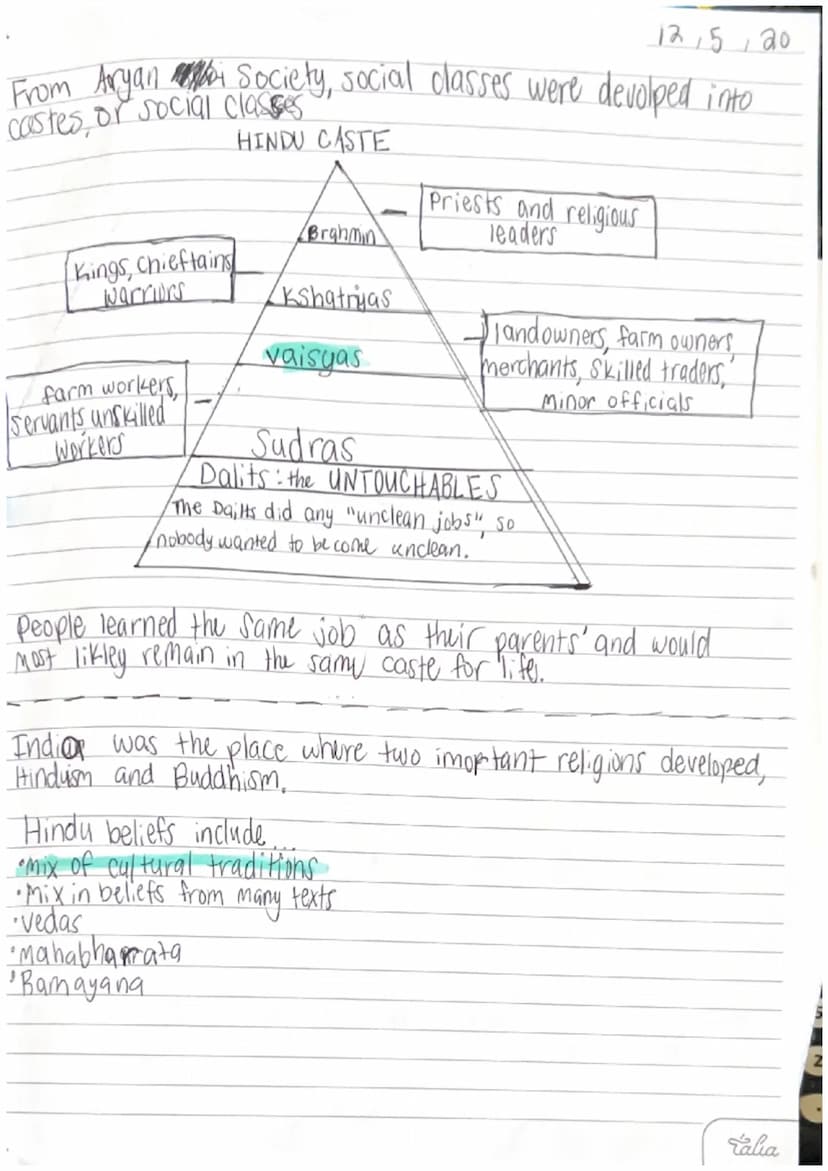 12, 5, 20
From Aryan Society, social classes were devolped into
castes, or social classes
HINDU CASTE
Priests and religious
leaders
Brahmin
Kings, Chieftains
warriors
Kshatriyas
landowners, farm owners,
merchants, skilled traders,
minor officials
vaisyas
farm workers,
servants unskilled
workers
Sudras
Dalits: the UNTOUCHABLES
The Dailts did any "unclean jobs", so
nobody wanted to become unclean.
People learned the same job as their parents' and would
most likley remain in the same caste for life.
India was the place where two imoprtant religions developed,
Hinduism and Buddhism.
Hindu beliefs include...
•mix of cultural traditions
•mix in beliefs from many texts
•vedas
•mahabharata
•Ramayana
talia